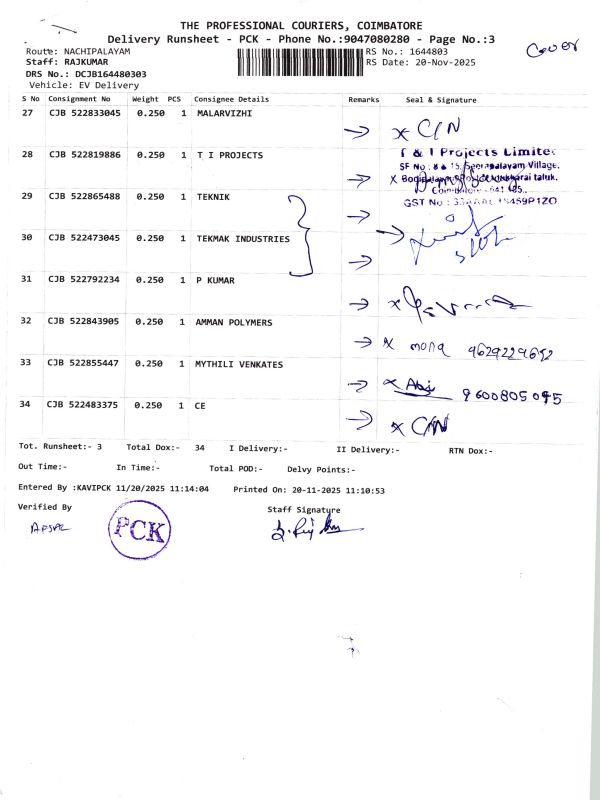 THE PROFESSIONAL COURIERS, COIMBATORE
Delivery Runsheet - PCK - Phone No.:9047080280 - Page No.:3
Cover
Route: NACHIPALAYAM RS No.: 1644803
Staff: RAJKUMAR RS Date: 20-Nov-2025
DRS No.: DCJB164480303
Vehicle: EV Delivery
S No Consignment No Weight PCS Consignee Details Remarks Seal & Signature
27 CJB 522833045 0.250 1 MALARVIZHI
→ x C/N
28 CJB 522819886 0.250 1 T I PROJECTS
Projects Limited
SF No : 15, Village,
taluk.
Coimbatore - 641 105.
GST No :
29 CJB 522865488 0.250 1 TEKNIK
30 CJB 522473045 0.250 1 TEKMAK INDUSTRIES
31 CJB 522792234 0.250 1 P KUMAR
32 CJB 522843905 0.250 1 AMMAN POLYMERS
→ x mona 9629229692
33 CJB 522855447 0.250 1 MYTHILI VENKATES
→ x Abi 9600805095
34 CJB 522483375 0.250 1 CE
→ x C/N
Tot. Runsheet:- 3 Total Dox:- 34 I Delivery:- II Delivery:- RTN Dox:-
Out Time:- In Time:- Total POD:- Delvy Points:-
Entered By :KAVIPCK 11/20/2025 11:14:04 Printed On: 20-11-2025 11:10:53
Verified By Staff Signature
PCK